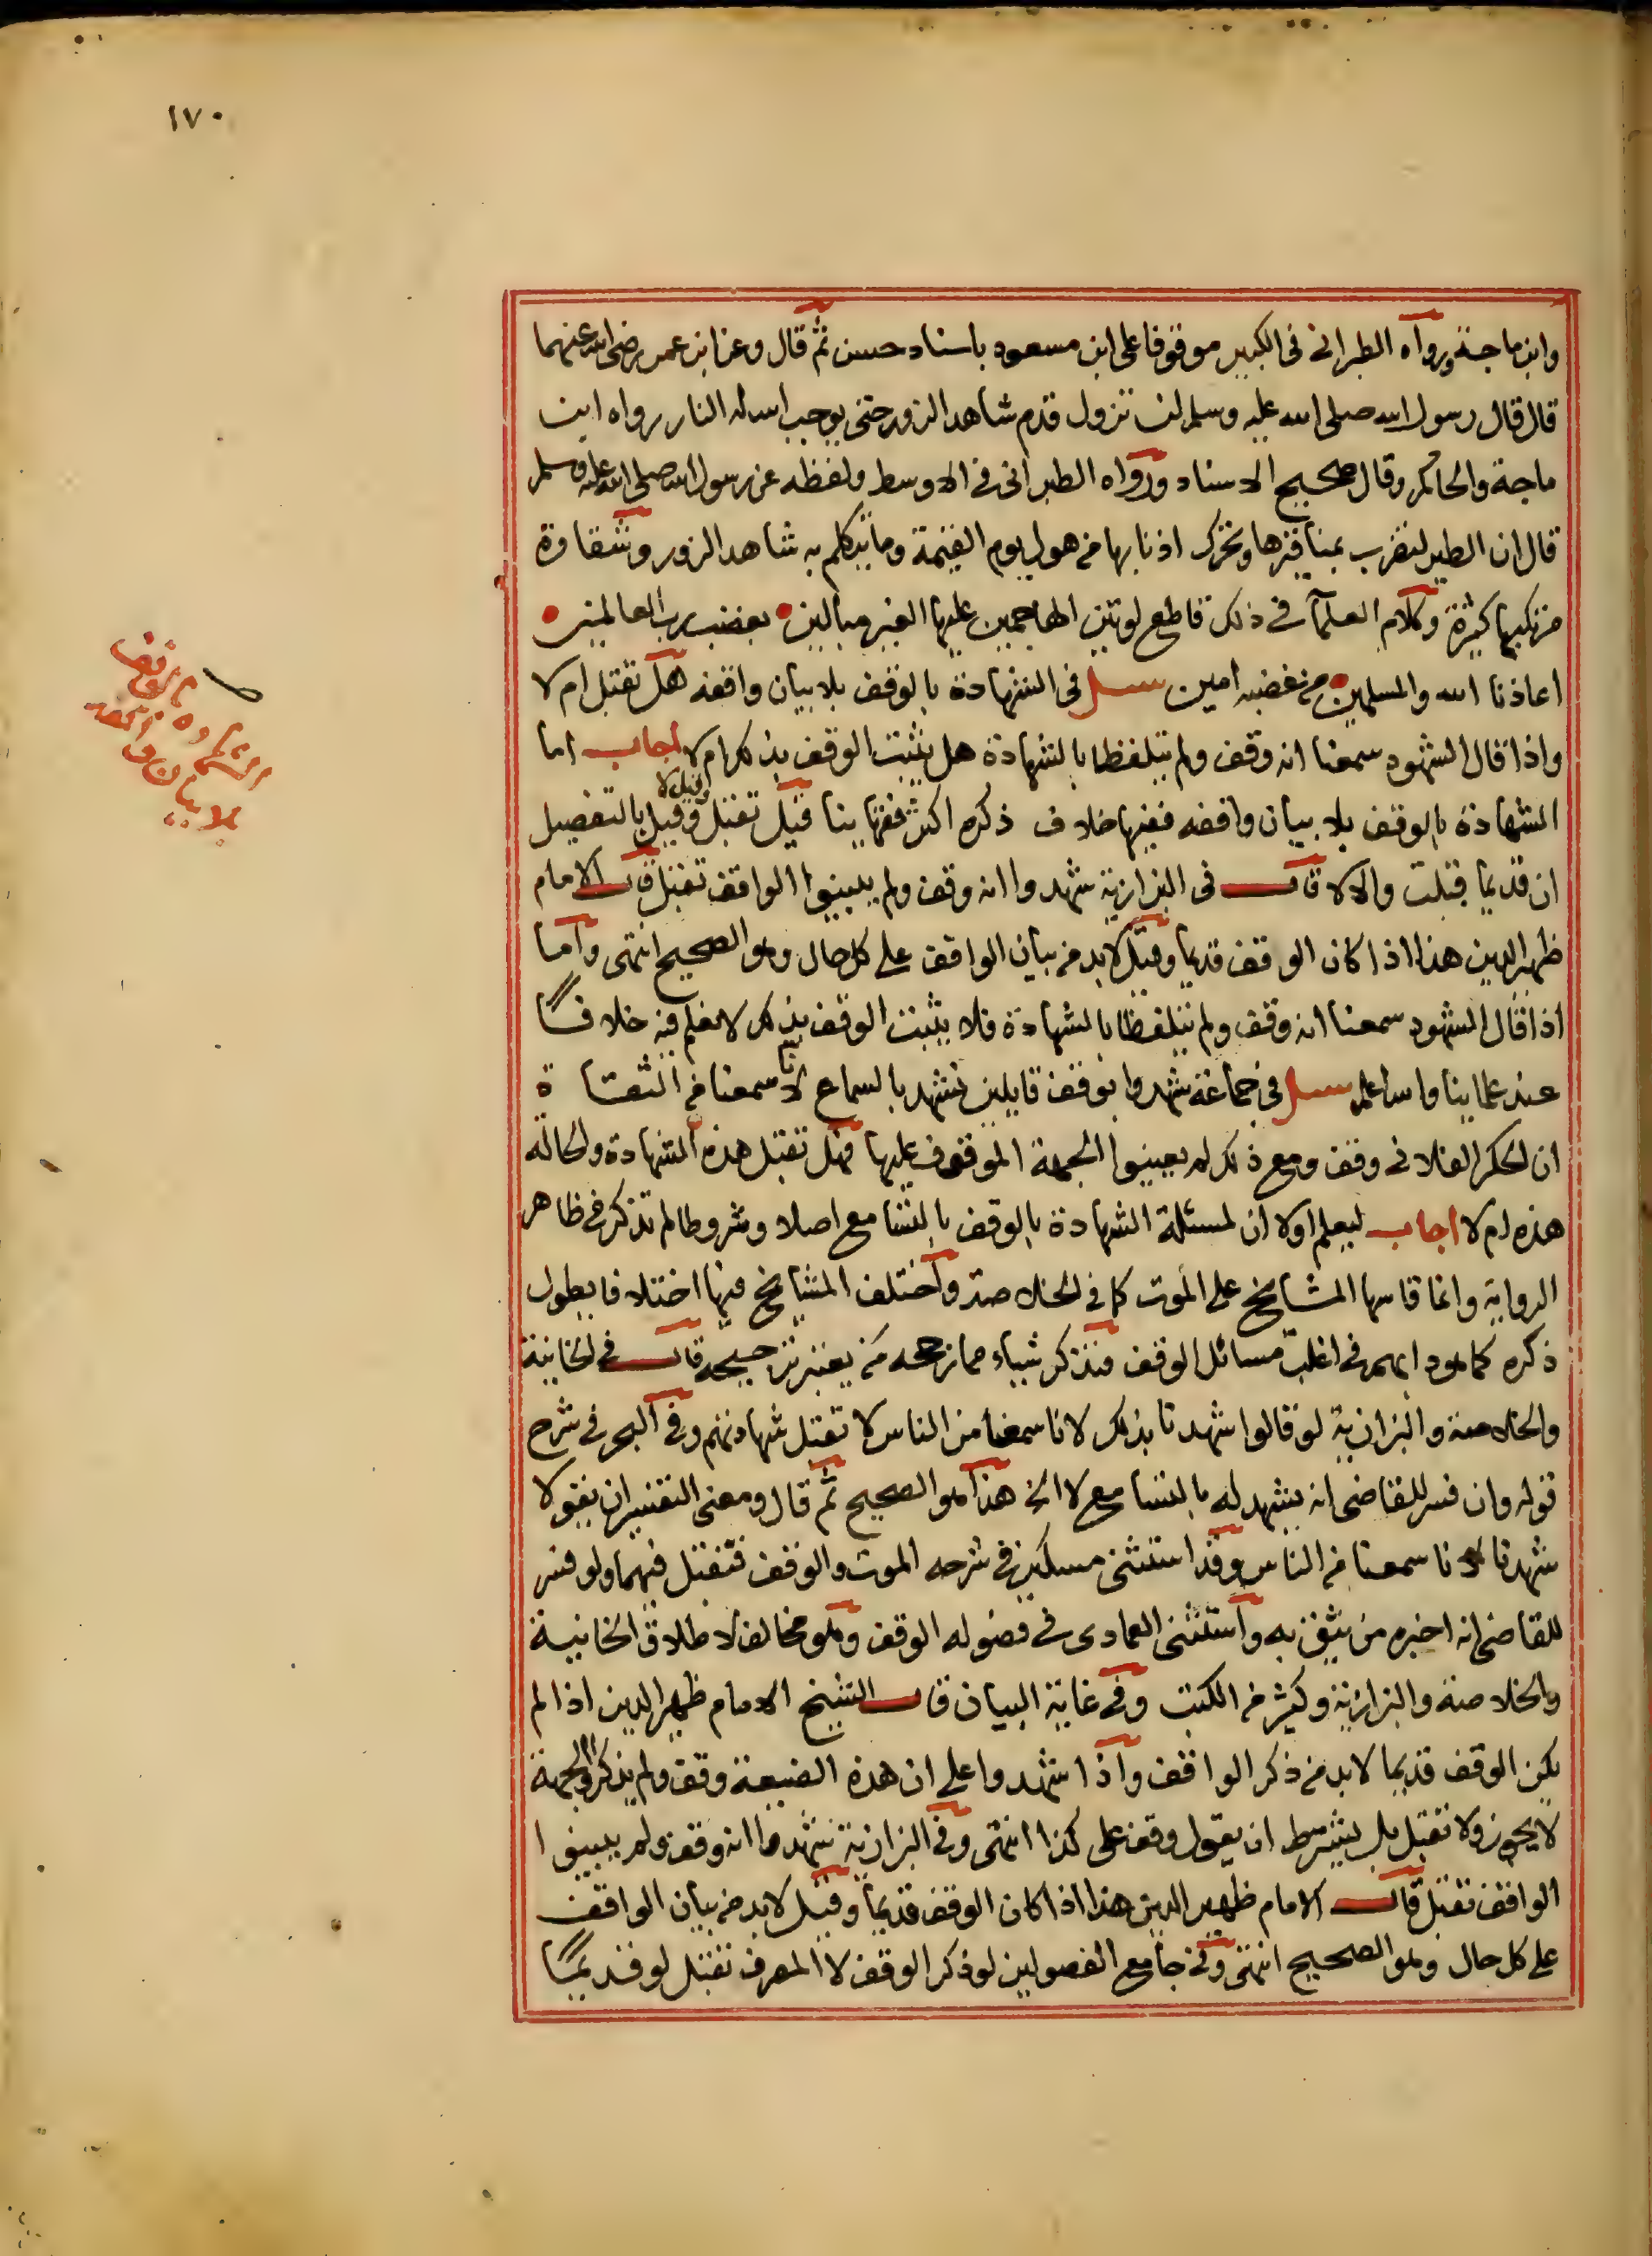 ١٧٠
وابن ماجة ورواه الطبراني في الكبير موقوفا على ابن مسعود باسناد حسن ثم قال وعن ابن عمر رضى الله عنهما
قال قال رسول الله صلى الله عليه وسلم لن تزول قدم شاهد الزور حتى يوجب الله له النار رواه ابن
ماجة والحاكم وقال صحيح الاسناد ورواه الطبراني في الاوسط ولفظه عن رسول الله صلى الله عليه وسلم
قال ان الطير لتضرب بمناقرها وتحرك اذنابها من هول يوم القيمة وما يتكلم به شاهد الزور وشقاوة
مرتكبها كثيرة وكلام العلمآ في ذلك قاطع لوتين الهاجمين عليها الغير مبالين بغضب رب العالمين
اعاذنا الله والمسلمين من غضبه امين سئل في الشهادة بالوقف بلا بيان واقفه هل تقبل ام لا
واذا قال الشهود سمعنا انه وقف ولم يتلفظا بالشهادة هل يثبت الوقف بذلك ام لا اجاب اما
الشهادة بالوقف بلا بيان واقفه ففيها خلاف ذكره اكثر فقهاينا قيل تقبل وقيل لا وقيل بالتفصيل
ان قديما قبلت والا لا قال في البزازية شهدوا انه وقف ولم يبينوا الواقف تقبل قال الامام
ظهير الدين هذا اذا كان الوقف قديما وقيل لابد من بيان الواقف على كل حال وهو الصحيح انتهى واما
اذا قال الشهود سمعنا انه وقف ولم يتلفظا بالشهادة فلا يثبت الوقف بذلك لا نعلم فيه خلافًا
عند علماينا والله اعلم سئل في جماعة شهدوا بوقف قايلين نشهد بالسماع لانا سمعنا من الثقاة
ان الحكر الفلاني وقف ومع ذلك لم يعينوا الجهة الموقوف عليها فهل تقبل هذه الشهادة والحالة
هذه ام لا اجاب ليعلم اولا ان لمسئلة الشهادة بالوقف بالتسامع اصلا وشروطا لم تذكر في ظاهر
الرواية وانما قاسها المشايخ على الموت كما في الخلاصة واختلف المشايخ فيها اختلافا يطول
ذكره كما هو دابهم في اغلب مسائل الوقف فنذكر شياء مما رجحه من يعتبر ترجيحه قال في الخانية
والخلاصة والبزازية لو قالوا شهدنا بذلك لانا سمعنا من الناس لا تقبل شهادتهم وفي البحر في شرح
قوله وان فسر للقاضي انه يشهد له بالتسامع لا الخ هذا هو الصحيح ثم قال ومعنى التفسير ان يقولا
شهدنا لانا سمعنا من الناس وقد استثنى مسكين في شرحه الموت والوقف فتقبل فيهما ولو فسر
للقاضي انه اخبره من يثق به واستثنى العمادي في فصوله الوقف وهو مخالف لاطلاق الخانية
والخلاصة والبزازية وكثير من الكتب وفي غاية البيان قال الشيخ الامام ظهير الدين اذا لم
يكن الوقف قديما لابد من ذكر الواقف واذا شهدوا على ان هذه الضيعة وقف ولم يذكروا الجهة
لا يجوز ولا تقبل بل يشترط ان يقول وقف على كذا انتهى وفي البزازية شهدوا انه وقف ولم يبينوا
الواقف تقبل قال الامام ظهير الدين هذا اذا كان الوقف قديما وقيل لابد من بيان الواقف
على كل حال وهو الصحيح انتهى وفي جامع الفصولين لو ذكر الوقف لا المصرف تقبل لو قديمًا
الشهادة بالوقف
بلا بيان واقفه